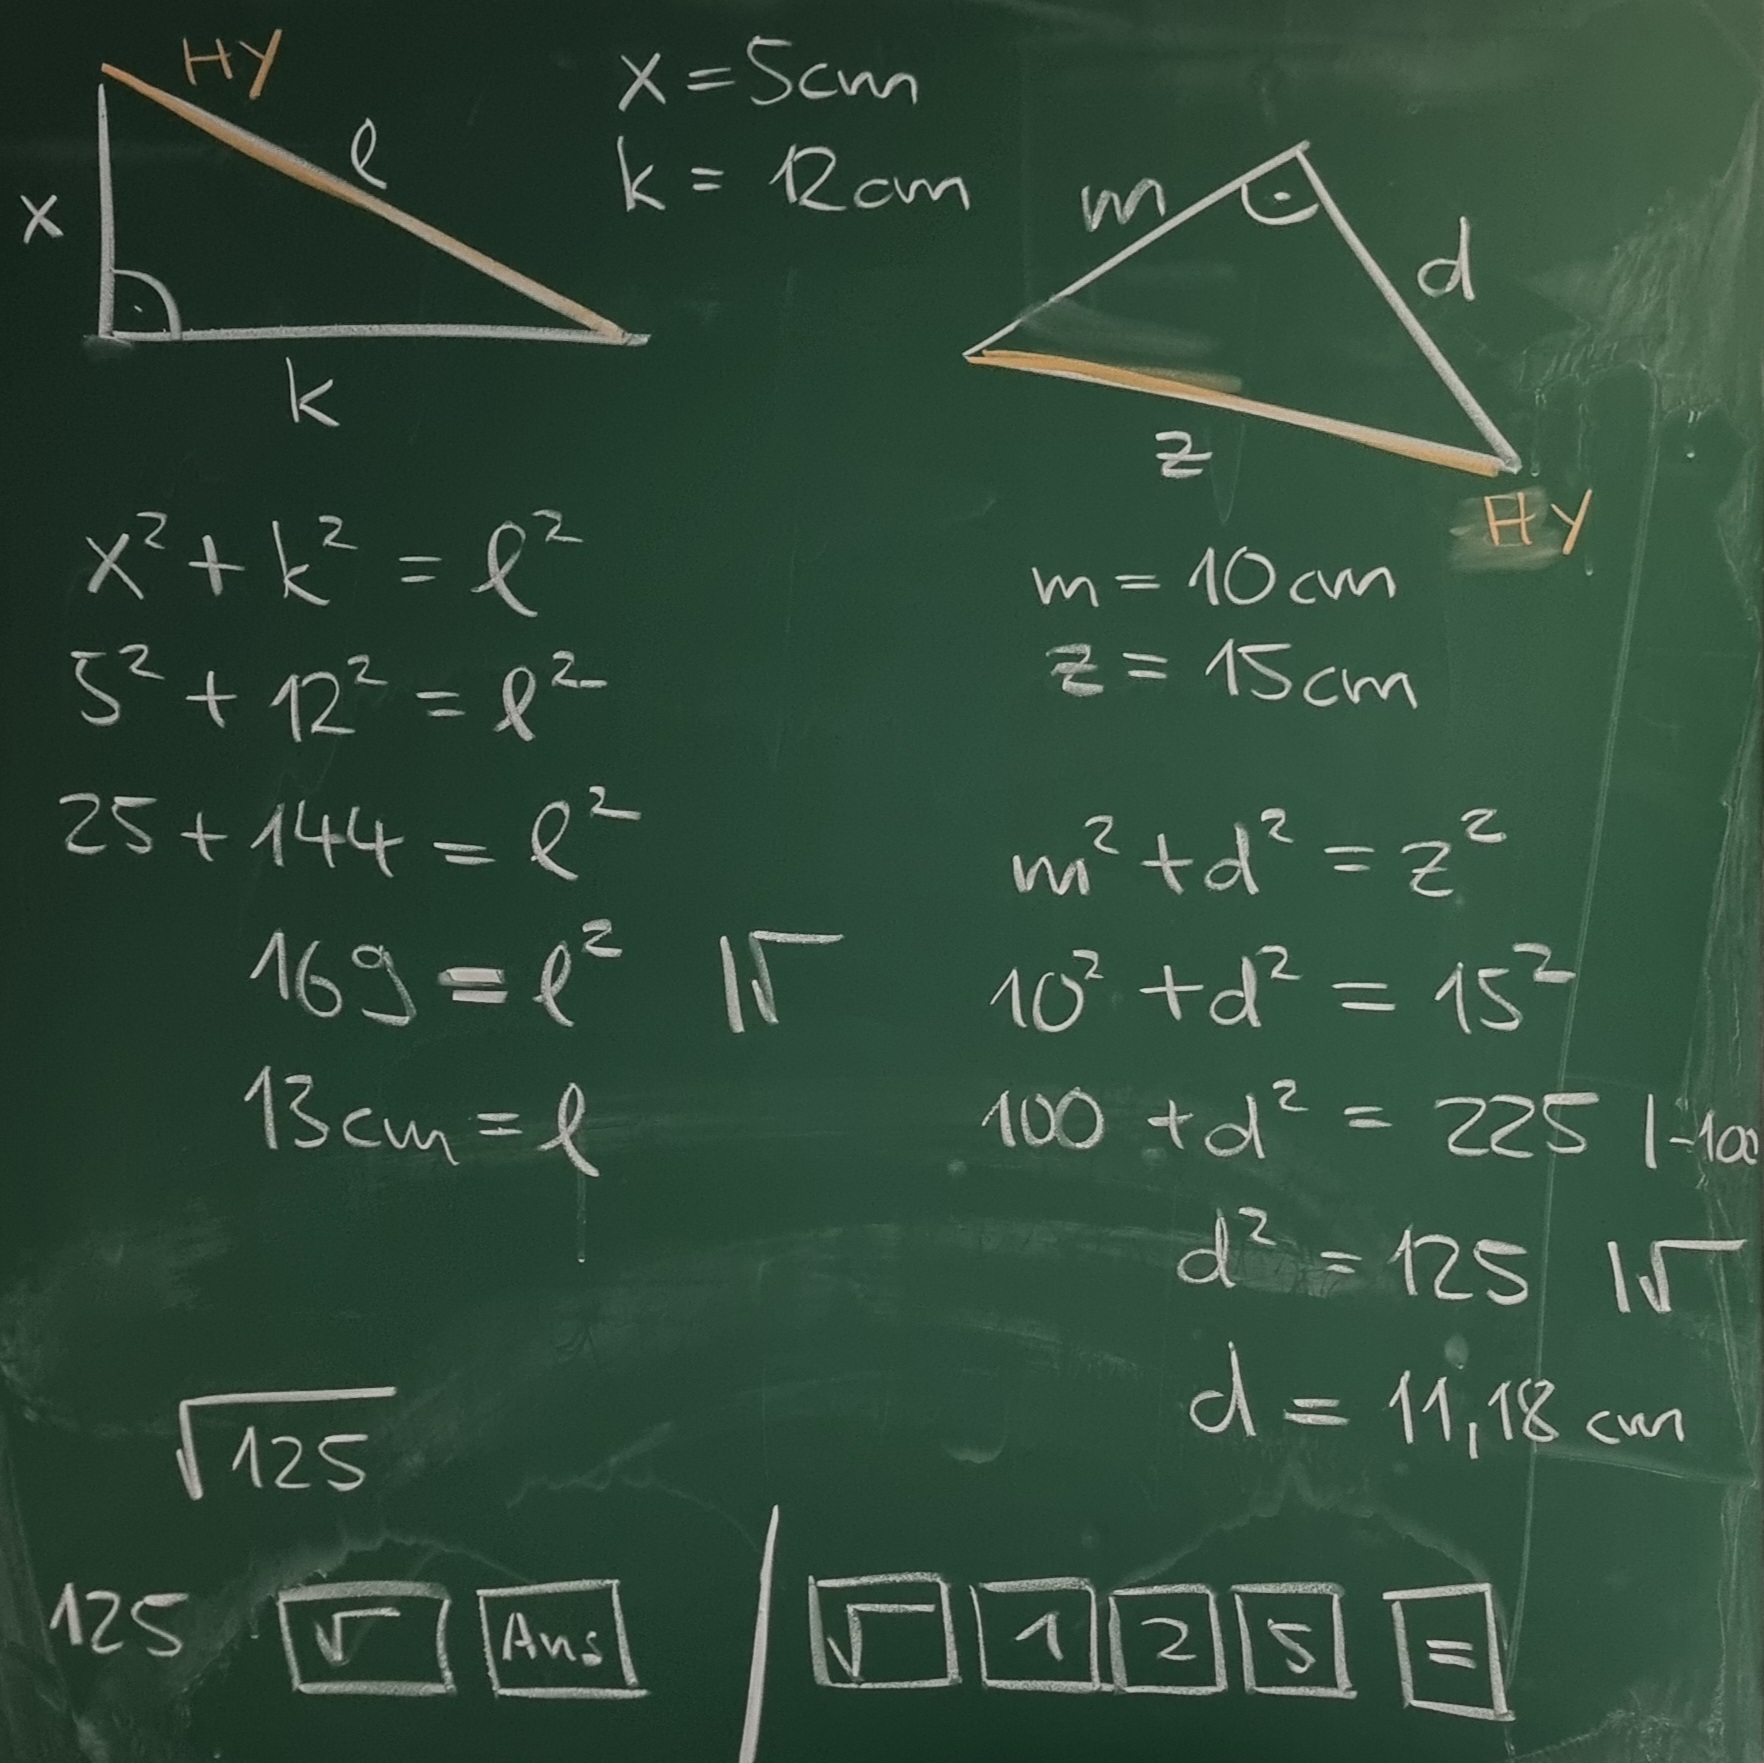 HY
l
x
k
x = 5cm
k = 12cm
x² + k² = l²
5² + 12² = l²
25 + 144 = l²
169 = l² |√
13cm = l
m
d
z
HY
m = 10cm
z = 15cm
m² + d² = z²
10² + d² = 15²
100 + d² = 225 |-100
d² = 125 |√
d = 11,18 cm
√125
125 √ Ans | √ 1 2 5 =